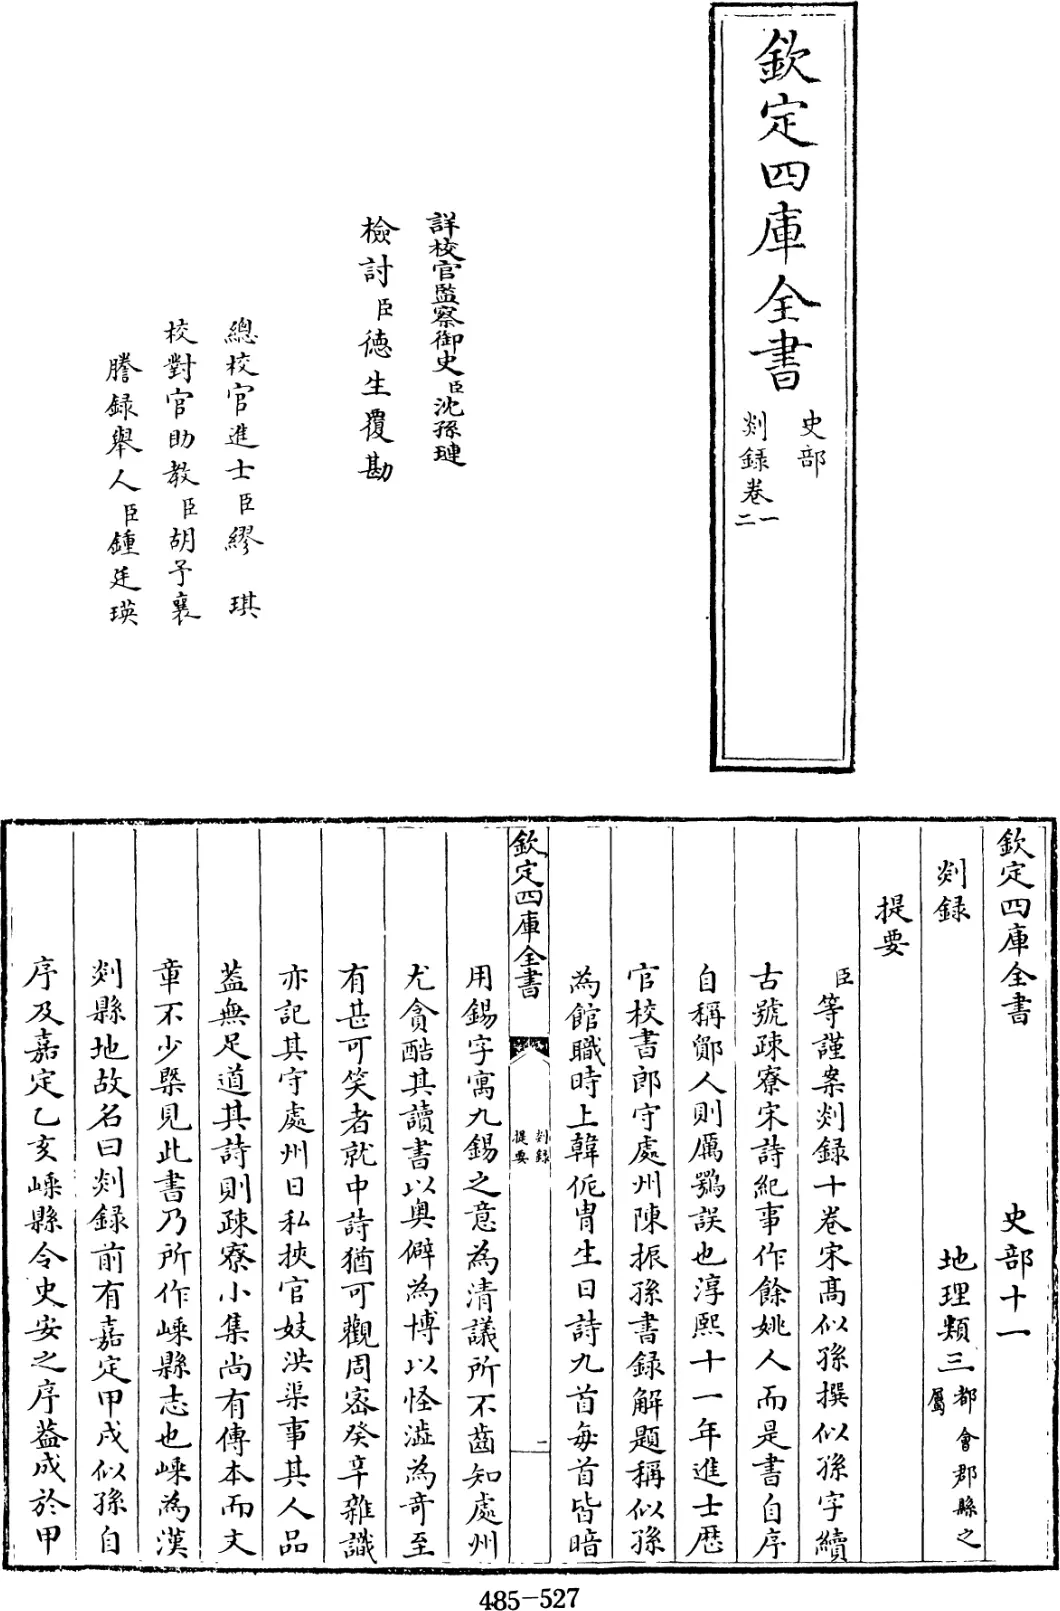 欽定四庫全書
史部
剡録卷一二
詳校官監察御史臣沈孫璉
檢討臣徳生覆勘
總校官進士臣繆琪
校對官助教臣胡予襄
謄録舉人臣鍾廷瑛
欽定四庫全書
史部十一
剡録
地理類三都會郡縣之屬
提要
臣等謹案剡録十卷宋髙似孫撰似孫字續
古號疎寮宋詩紀事作餘姚人而是書自序
自稱鄮人則厲鶚誤也淳熙十一年進士歴
官校書郎守處州陳振孫書録解題稱似孫
為館職時上韓侂胄生日詩九首每首皆暗
欽定四庫全書
剡録
提要
二
用錫字寓九錫之意為清議所不齒知處州
尤貪酷其讀書以奥僻為博以怪澁為奇至
有甚可笑者就中詩猶可觀周宻癸辛雜識
亦記其守處州日私挾官妓洪渠事其人品
葢無足道其詩則疎寮小集尚有傳本而文
章不少槩見此書乃所作嵊縣志也嵊為漢
剡縣地故名曰剡録前有嘉定甲戌似孫自
序及嘉定乙亥嵊縣令史安之序葢成於甲
485-527